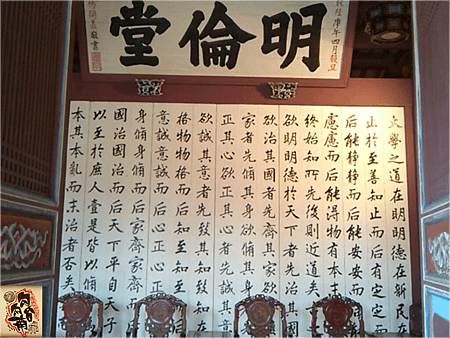 明倫堂
隆庚午四月穀旦
楊開鼎敬書
大學之道在明明德在新民在
止於至善知止而后有定定
后能靜靜而后能安安而后
慮慮而后能得物有本末
終始知所先後則近道矣
欲明明德於天下者先治其國
欲治其國者先齊其家欲
家者先脩其身欲脩其身
正其心欲正其心者先誠其
欲誠其意者先致其知致知在
格物物格而后知至知至
意誠意誠而后心正心正
身脩身脩而后家齊家齊
國治國治而后天下平自天子
以至於庶人壹是皆以脩
本其本亂而末治者否矣